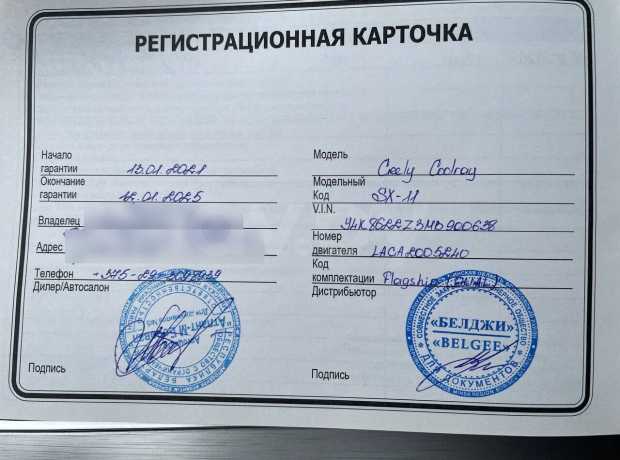 РЕГИСТРАЦИОННАЯ КАРТОЧКА
Начало
гарантии 13.01.2021
Окончание
гарантии 12.01.2025
Владелец
Адрес
Телефон
Дилер/Автосалон
Подпись
Модель Geely Coolray
Модельный
Код SX-11
V.I.N. Y4K8622Z3MB900638
Номер
двигателя LACA2005240
Код
комплектации Flagship
Дистрибьютор
«БЕЛДЖИ»
«BELGEE»
ДЛЯ ДОКУМЕНТОВ
Подпись